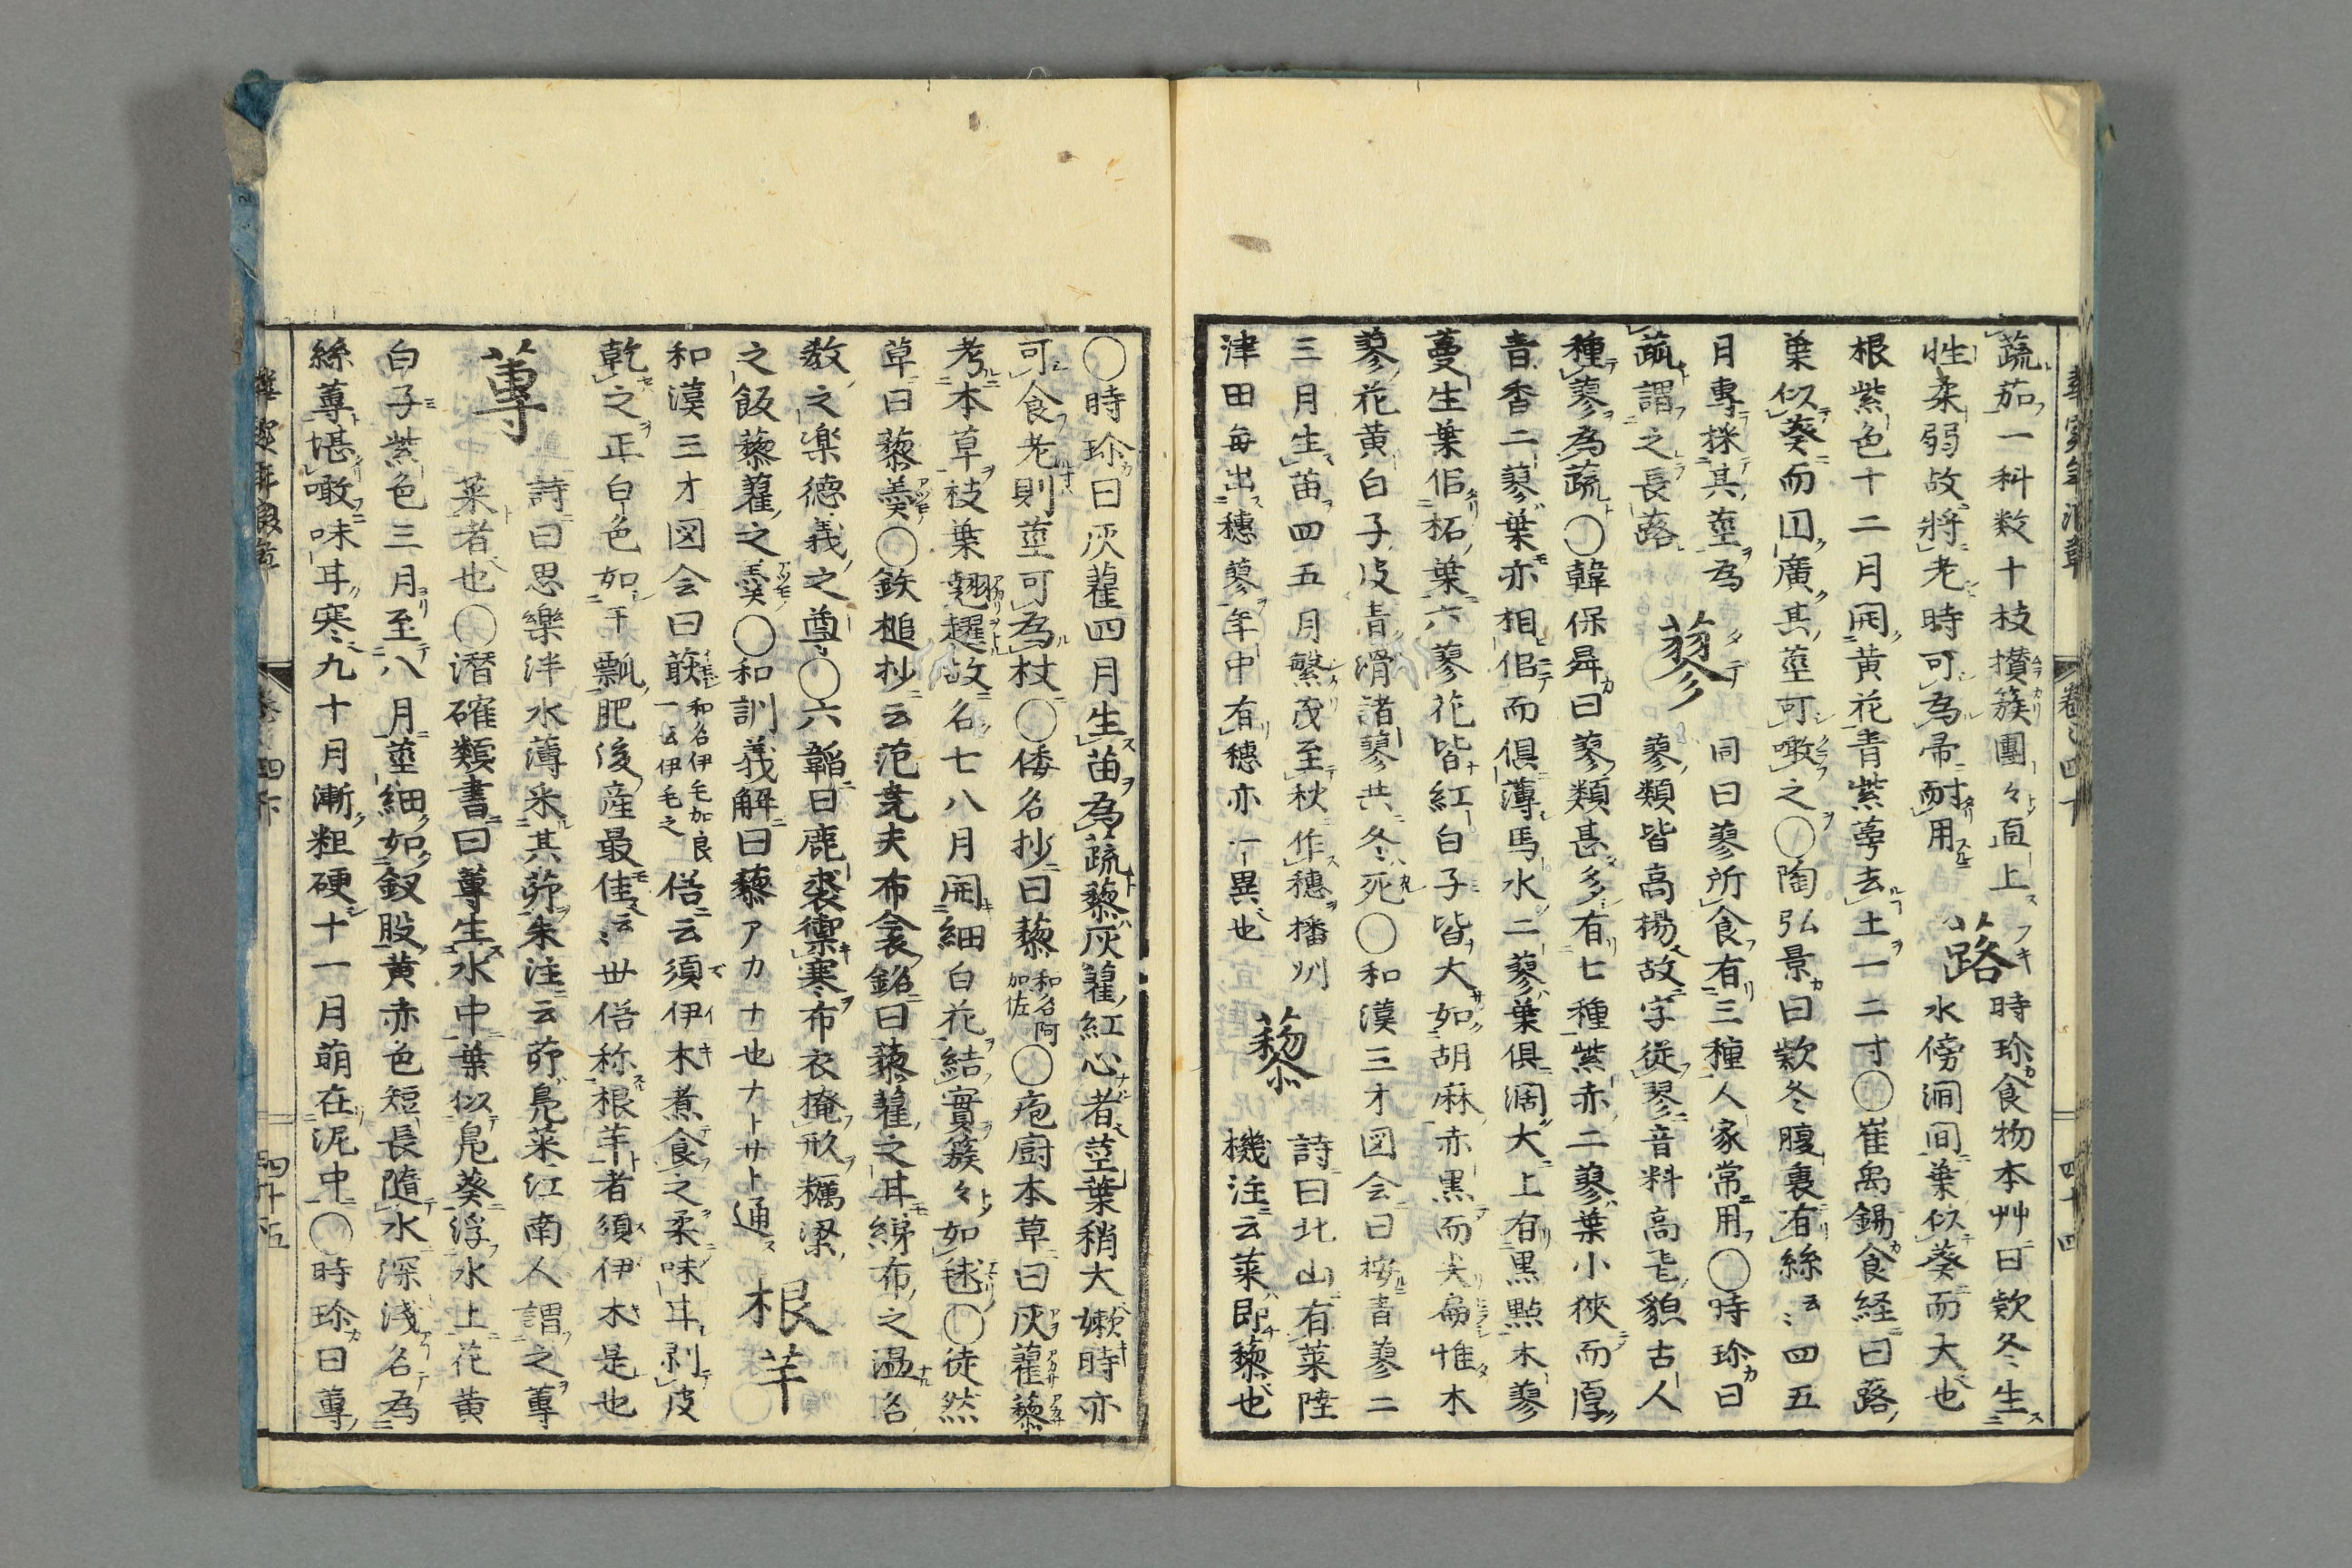 蔬茹一科数十枝攅簇團々直上 蕗 時珍食物本艸曰欵冬生
性柔弱故將老時可為帚耐用 水傍澗間葉似葵而大也
根紫色十二月開黄花青紫蕚去土一二寸〇崔禹錫食経曰蕗
葉似葵而円廣其莖可噉之〇陶弘景曰欵冬腹裏有絲云々四五
月専採其莖為 蓼 同曰蓼所食有三種人家常用〇時珍曰
蔬謂之長蕗 蓼類皆高揚故字従翏音料高飛貌古人
種蓼為蔬〇韓保昇曰蓼類甚多有七種紫赤二蓼葉小狹而厚
青香二蓼葉亦相佀而倶薄馬水二蓼葉倶濶大上有黒點木蓼
蔓生葉佀柘葉六蓼花皆紅白子皆大如胡麻赤黒而尖扁惟木
蓼花黄白子皮青滑諸蓼共冬死〇和漢三才図会曰桉青蓼二
三月生苗四五月繁茂至秋作穗播州 藜 詩曰北山有萊陸
津田毎出穗蓼年中有穗亦一異也 機注云萊即藜也
〇時珍曰灰藋四月生苗為蔬藜灰藋紅心者莖葉稍大嫩時亦
可食老則莖可為杖〇倭名抄曰藜和名阿加佐〇庖厨本草曰灰藋藜
考本草枝葉翹趯故名七八月開細白花結實簇々如毬〇徒然
草曰藜羹〇鉄槌抄云范尭夫布衾銘曰藜藋之甘綈布之温名
教之楽徳義之尊〇六韜曰鹿裘禦寒布衣掩形糲粱
之飯藜藋之羹〇和訓義解曰藜アカナ也ナトサト通 根芋
和漢三才図会曰蔌和名伊毛加良一云伊毛之俗云須伊木煮食之柔味甘剥皮
乾之正白色如干瓢肥後産最佳云々世俗称根芋者須伊木是也
蓴 詩曰思樂泮水薄采其茆朱注云茆鳧葵江南人謂之蓴
菜者也〇潜確類書曰蓴生水中葉似鳧葵浮水上花黄
白子紫色三月至八月莖細如釵股黄赤色短長隨水深淺名為
絲蓴堪噉味甘寒九十月漸粗硬十一月萌在泥中〇時珍曰蓴